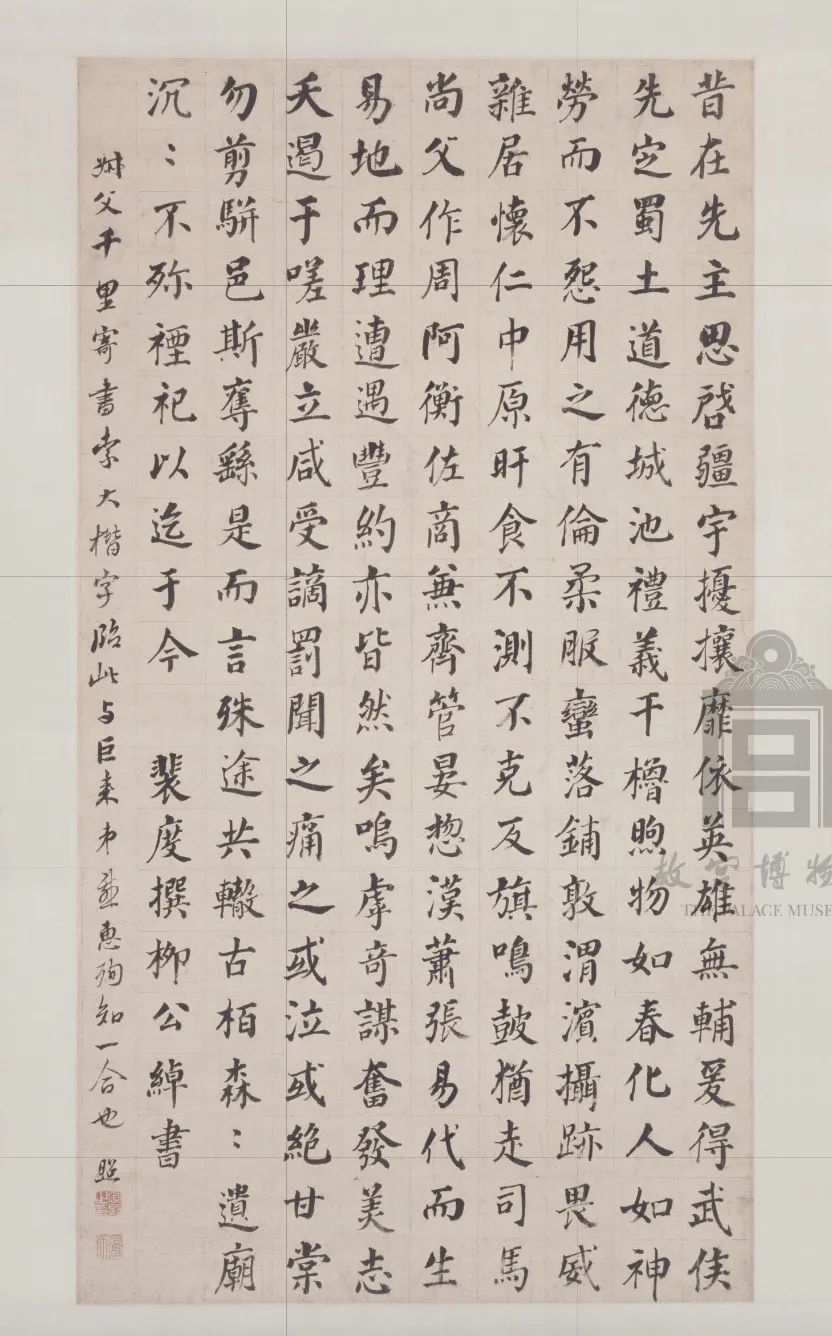 昔在先主思啓疆宇擾攘靡依英雄無輔爰得武侯
先定蜀土道德城池禮義干櫓煦物如春化人如神
勞而不怨用之有倫柔服蠻落鋪敦渭濱攝跡畏威
雜居懷仁中原旰食不測不克反旗鳴鼓猶走司馬
尚父作周阿衡佐商兼齊管晏惣漢蕭張易代而生
易地而理遭遇豐約亦皆然矣嗚虖奇謀奮發美志
夭遏于嗟嚴立咸受謫罰聞之痛之或泣或絶甘棠
勿剪駢邑斯奪繇是而言殊途共轍古栢森〻遺廟
沉〻不殄禋祀以迄于今 裴度撰栁公綽書
叔父千里寄書索大楷字臨此与巨来弟惠殉知一合也 照
故宫博物
THE PALACE MUSE